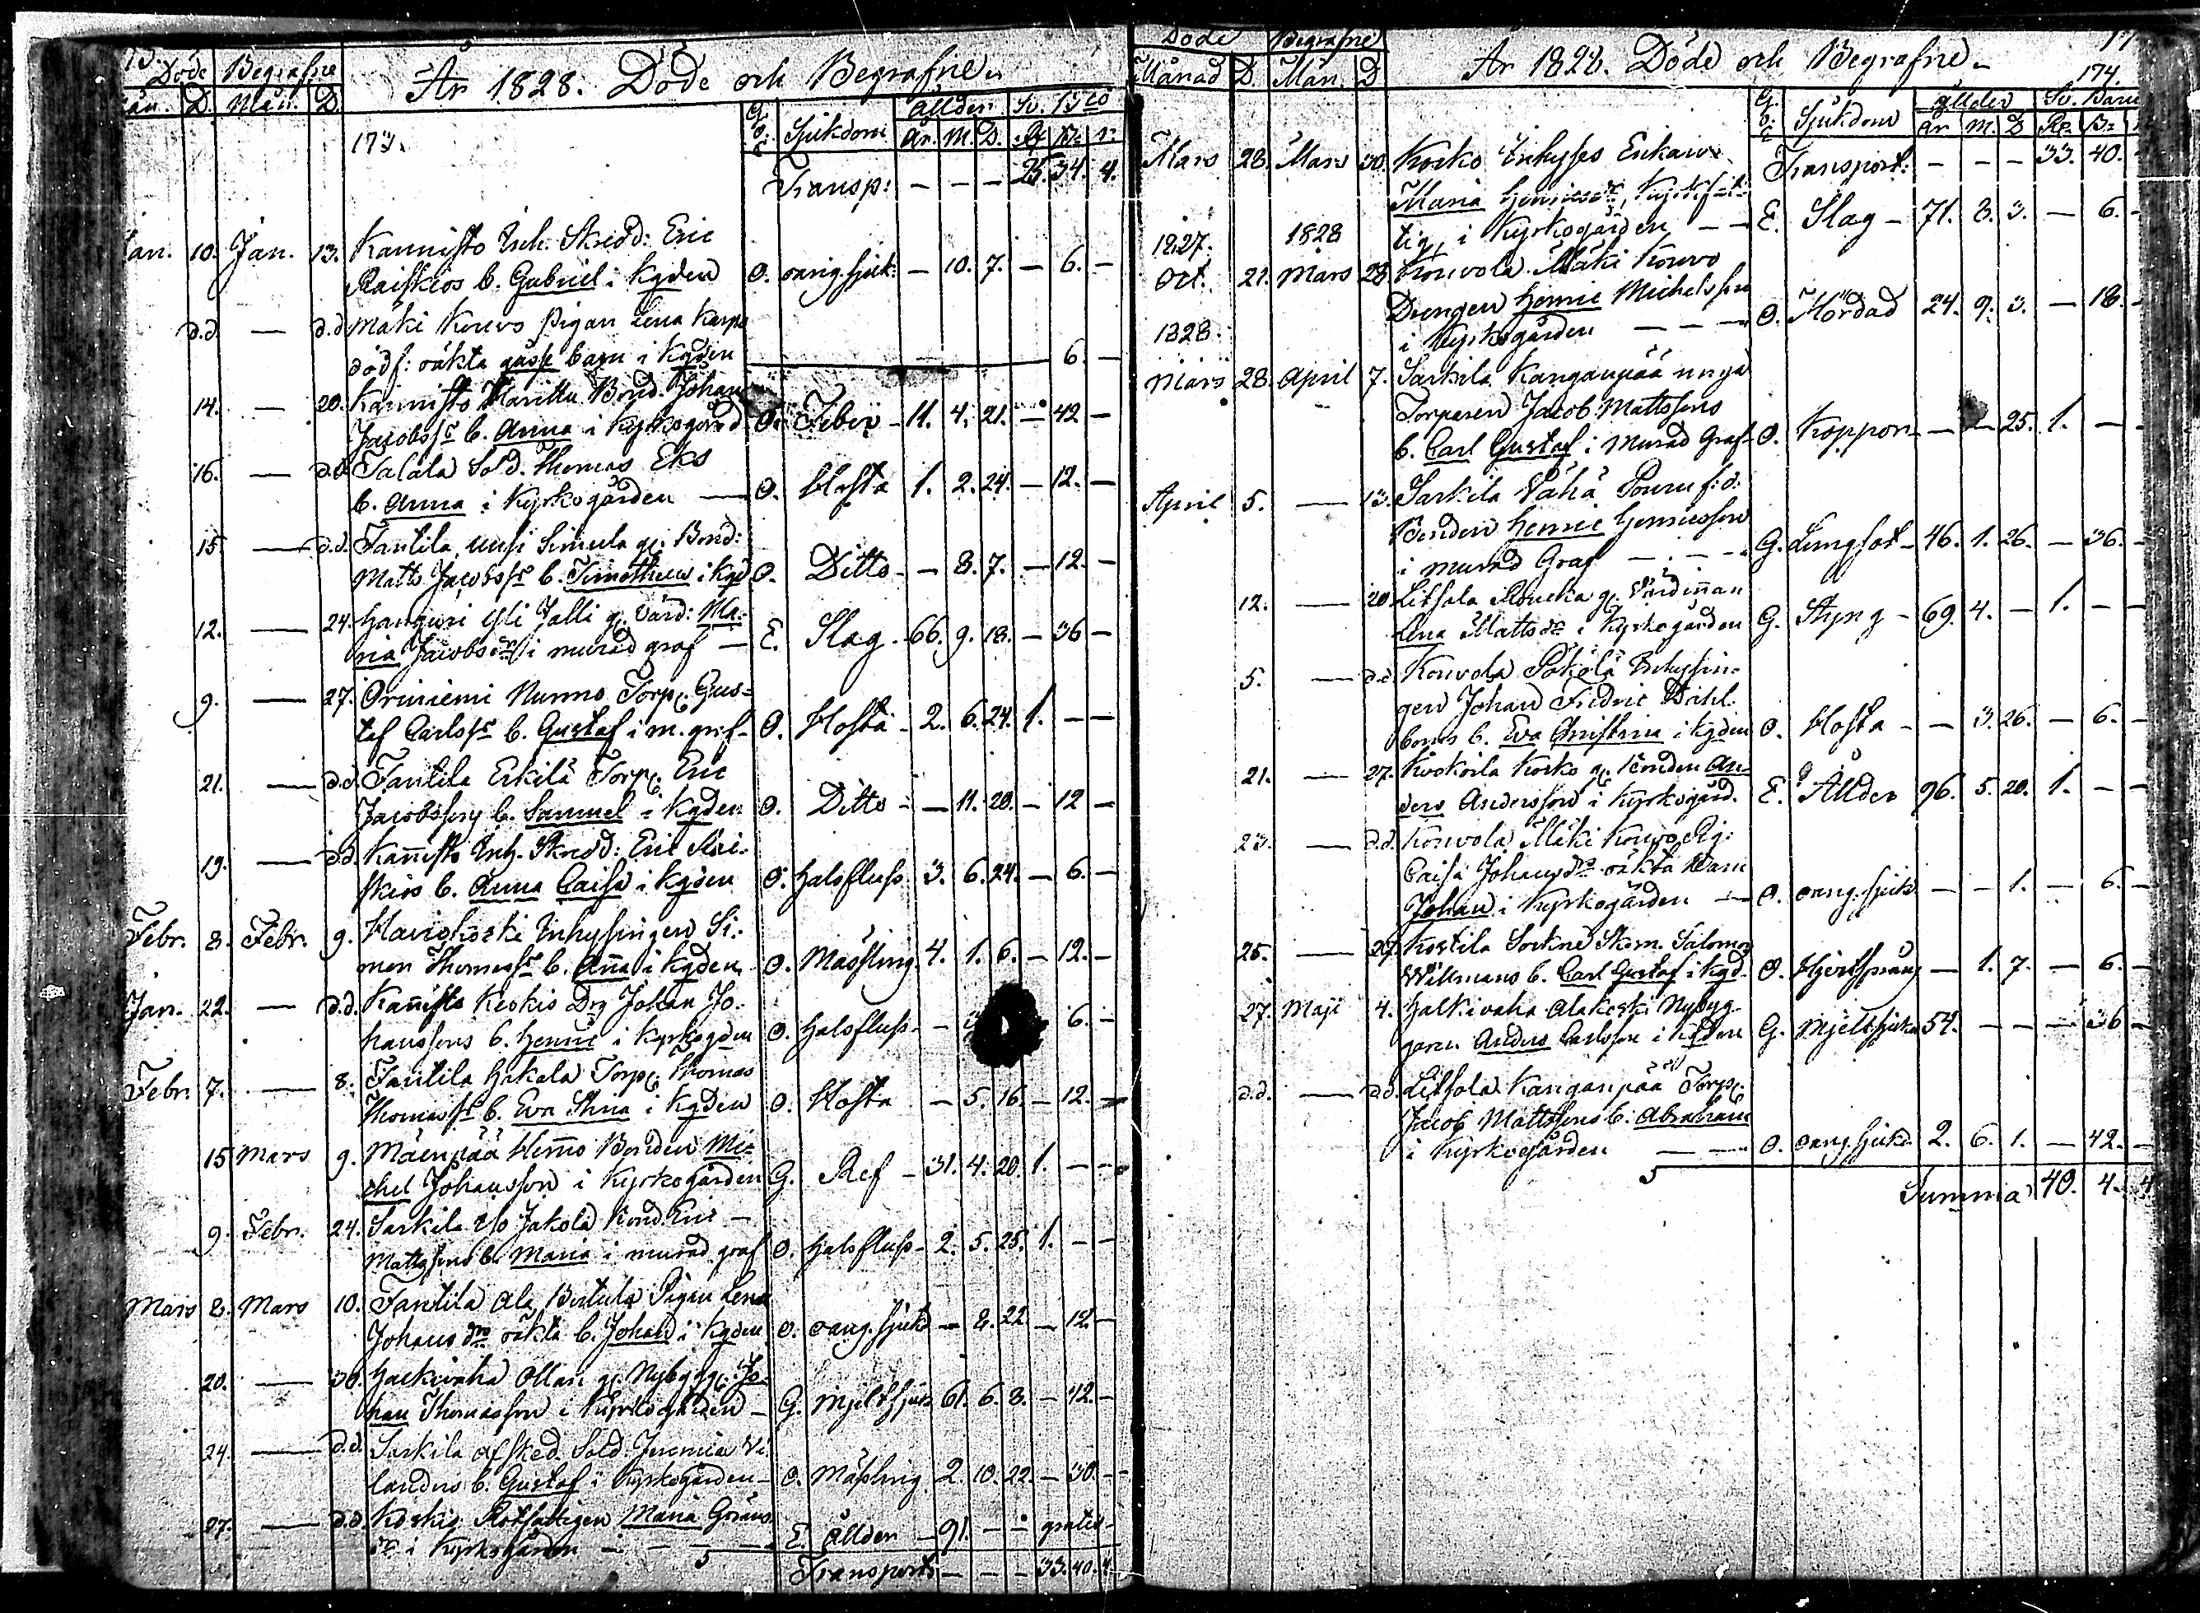 Döde Begrafne År 1828. Döde och Begrafne.
Mån. D. Mån. D.
173. G. O. E. Sjukdom Ållder Sv. B:co
År. M. D. R. 
Transp: — — — 25. 34. 4.
Jan. 10. Jan. 13. Kannisto Inh. Skrädd: Eric
Raiskios b. Gabriel i Kgden O. oang. sjuk. — 10. 7. — 6. —
d.d. — d.d. Mäki Kouvo Pigan Lena Karps
dödf: oäkta gåsse barn i Kgden 6. —
14. — 20. Kannisto Maritta Bond. Johan
Jacobss b. Anna i Kyrkogård O. Feber 11. 4. 21. — 42 —
16. — d.d. Talala Sold. Thomas Eks
b. Anna i Kyrkogården — O. Hosta 1. 2. 24. — 12. —
15 — d.d. Tantila Uusi Simula g. Bond:
Matts Jacobss b. Timotheus i Kgd O. Ditto — 8. 7. — 12. —
12. — 24. Hanguri Yli Jalli g. Värd: Ma-
ria Jacobsdr i murad graf — E. Slag 66. 9. 18. — 36 —
9. — 27. Oriniemi Nummo Torp. Gus-
taf Carlss b. Gustaf i m. graf O. Hosta 2. 6. 24. 1. — —
21. — d.d. Tantila Erkilä Torp. Eric
Jacobssons b. Samuel i Kgden O. Ditto — 11. 20. — 12 —
19. — d.d. Kannisto Inh. Skrädd: Eric Rai-
skios b. Anna Caisa i Kgden O. Halsfluss 3. 6. 24. — 6. —
Febr. 8. Febr. 9. Haviokoski Inhysingen Si-
mon Thomass b. Anna i Kgden O. Mässling 4. 1. 6. — 12. —
Jan. 22. — d.d. Kannisto Keskis Drg Johan Jo-
hanssons b. Henric i Kyrkogden O. Halsfluss — 6. —
Febr. 7. — 8. Tantila Hakala Torp. Thomas
Thomass b. Eva Stina i Kgden O. Hosta — 5. 16. — 12. —
15 Mars 9. Mäenpää Hemmo Bonden Mi-
chel Johansson i Kyrkogården G. Ref 31. 4. 20. 1. — —
9. Febr. 24. Sarkila Yso Jakola Bond. Eric
Mattssons b. Maria i murad graf O. Halsfluss 2. 5. 25. 1. — —
Mars 8. Mars 10. Tantila Ala Bertula Pigan Lena
Johansdr oäkta b. Johan i Kgden O. oang. sjukd — 8. 22 — 12 —
20. — 30. Halkivaha Ollari g. Nybygg. Jo-
han Thomasson i Kyrkogården — G. Mjeltsjuk 61. 6. 8. — 42. —
24. — d.d. Sarkila afsked. Sold. Jeremia Vi-
landers b. Gustaf i Kyrkogården — O. Mässling 2. 10. 22. — 30. —
27. — d.d. Koskis Rotfattigen Maria Görans
dr i Kyrkogården — E. ållder 91. — — gratis —
Transport — — — 33. 40. 4
Döde Begrafne År 1828. Döde och Begrafne
Månad D. Mån. D 174.
G. O. E. Sjukdom ållder Sv. Banco
år M. D Rd.
Transport: — — — 33. 40.
Mars 28. Mars 30. Korko Inhyses Enkan
Maria Henricsdr, Kyrkfat-
tig, i Kyrkogården — E. Slag 71. 8. 3. — 6.
1827. 1828
Oct. 21. Mars 28. Kouvola Mäki Kouvo
Drengen Henric Michelsson
i Kyrkogården — — — O. Mördad 24. 9. 3. — 18.
1828.
Mars 28. April 7. Sarkila Kanganpää
Torparen Jacob Mattssons
b. Carl Gustaf i murad Graf O. Koppor — — 25. 1. —
April 5. — 13. Sarkila Vähä Pouru f:d:
Bonden Henric Henricsson
i murad Graf — G. Lungsot 46. 1. 26. — 36.
12. — 20. Litsola g. Värdinnan
Lena Mattsdr i Kyrkogården G. Styng 69. 4. — 1. —
5. — d.d. Kouvola Päkölä Inhysin-
gen Johan Fredric Dahl-
boms b. Eva Christina i Kgden O. Hosta — 3. 26. — 6.
21. — 27. Kvokoila Korko g. Bonden An-
ders Andersson i Kyrkogård. E. Ållder 96. 5. 20. 1. —
23. — d.d. Kouvola Mäki Kouvo Pig:
Caisa Johansdr oäkta Barn
Johan i Kyrkogården — O. oang. sjuk — — 1. — 6.
25. — 27. Kostila Sorkne Skom. Salomon
Willmans b. Carl Gustaf i Kgd. O. Hjertsprång — 1. 7. — 6.
27. Maji 4. Halkivaha Alakoski Nybyg-
garen Anders Carlsson i Kgden G. Mjeltsjuka 54. — — — 36
d.d. — d.d. Litsola Kanganpää Torp.
Jacob Mattssons b. Abraham
i Kyrkogården — O. oang. sjukd 2. 6. 1. — 42.
Summa 40. 4. 4